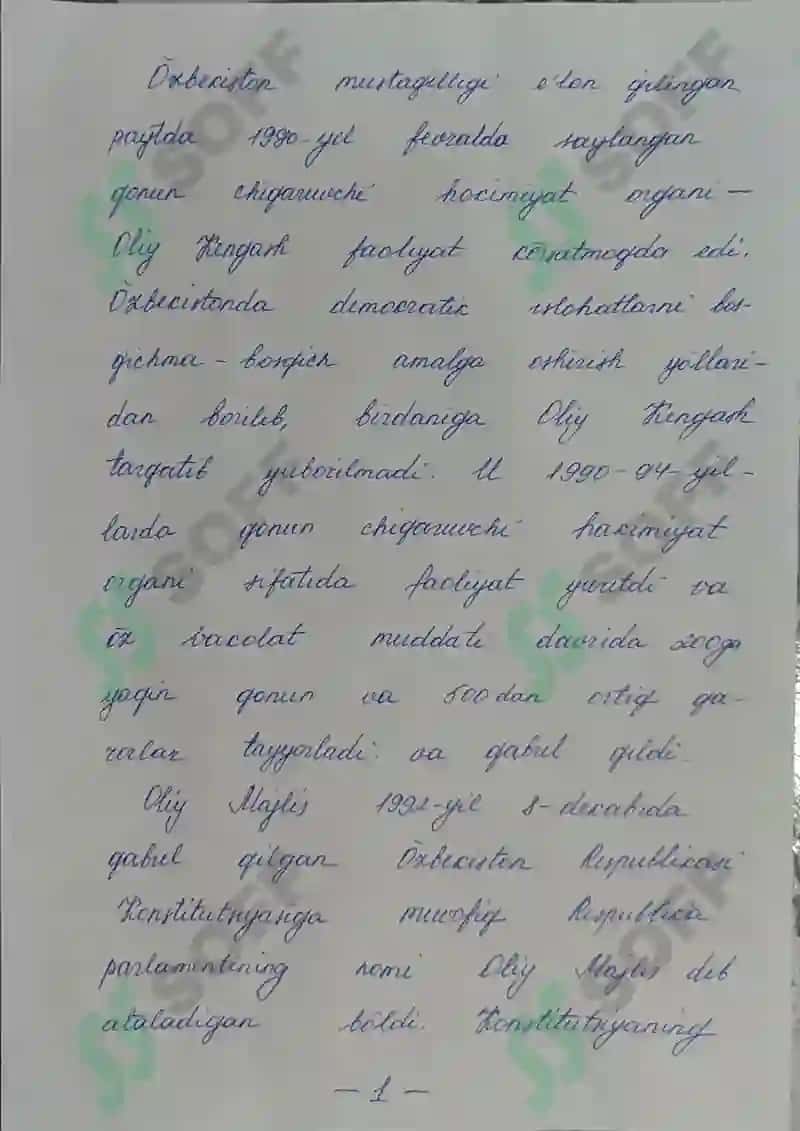 Õzbekiston mustaqilligi e'lon qilingan
paytda 1990-yil fevralda saylangan
qonun chiqaruvchi hokimiyat organi —
Oliy Kengash faoliyat kõrsatmoqda edi.
Õzbekistonda demokratik islohatlarni bos-
qichma-bosqich amalga oshirish yõllari-
dan borilib, birdaniga Oliy Kengash
tarqatib yuborilmadi. U 1990-94-yil-
larda qonun chiqaruvchi hakimiyat
organi sifatida faoliyat yuritdi va
õz vacolat muddati davrida 200ga
yaqin qonun va 500dan ortiq qa-
rorlar tayyorladi va qabul qildi.
Oliy Majlis 1992-yil 8-dekabrda
qabul qilgan Õzbekiston Respublikasi
Konstitutsiyasiga muvofiq Respublika
parlamentining nomi Oliy Majlis deb
ataladigan bõldi. Konstitutsiyaning
— 1 —
SOFF
SOFF
SOFF
SOFF
SOFF
SOFF